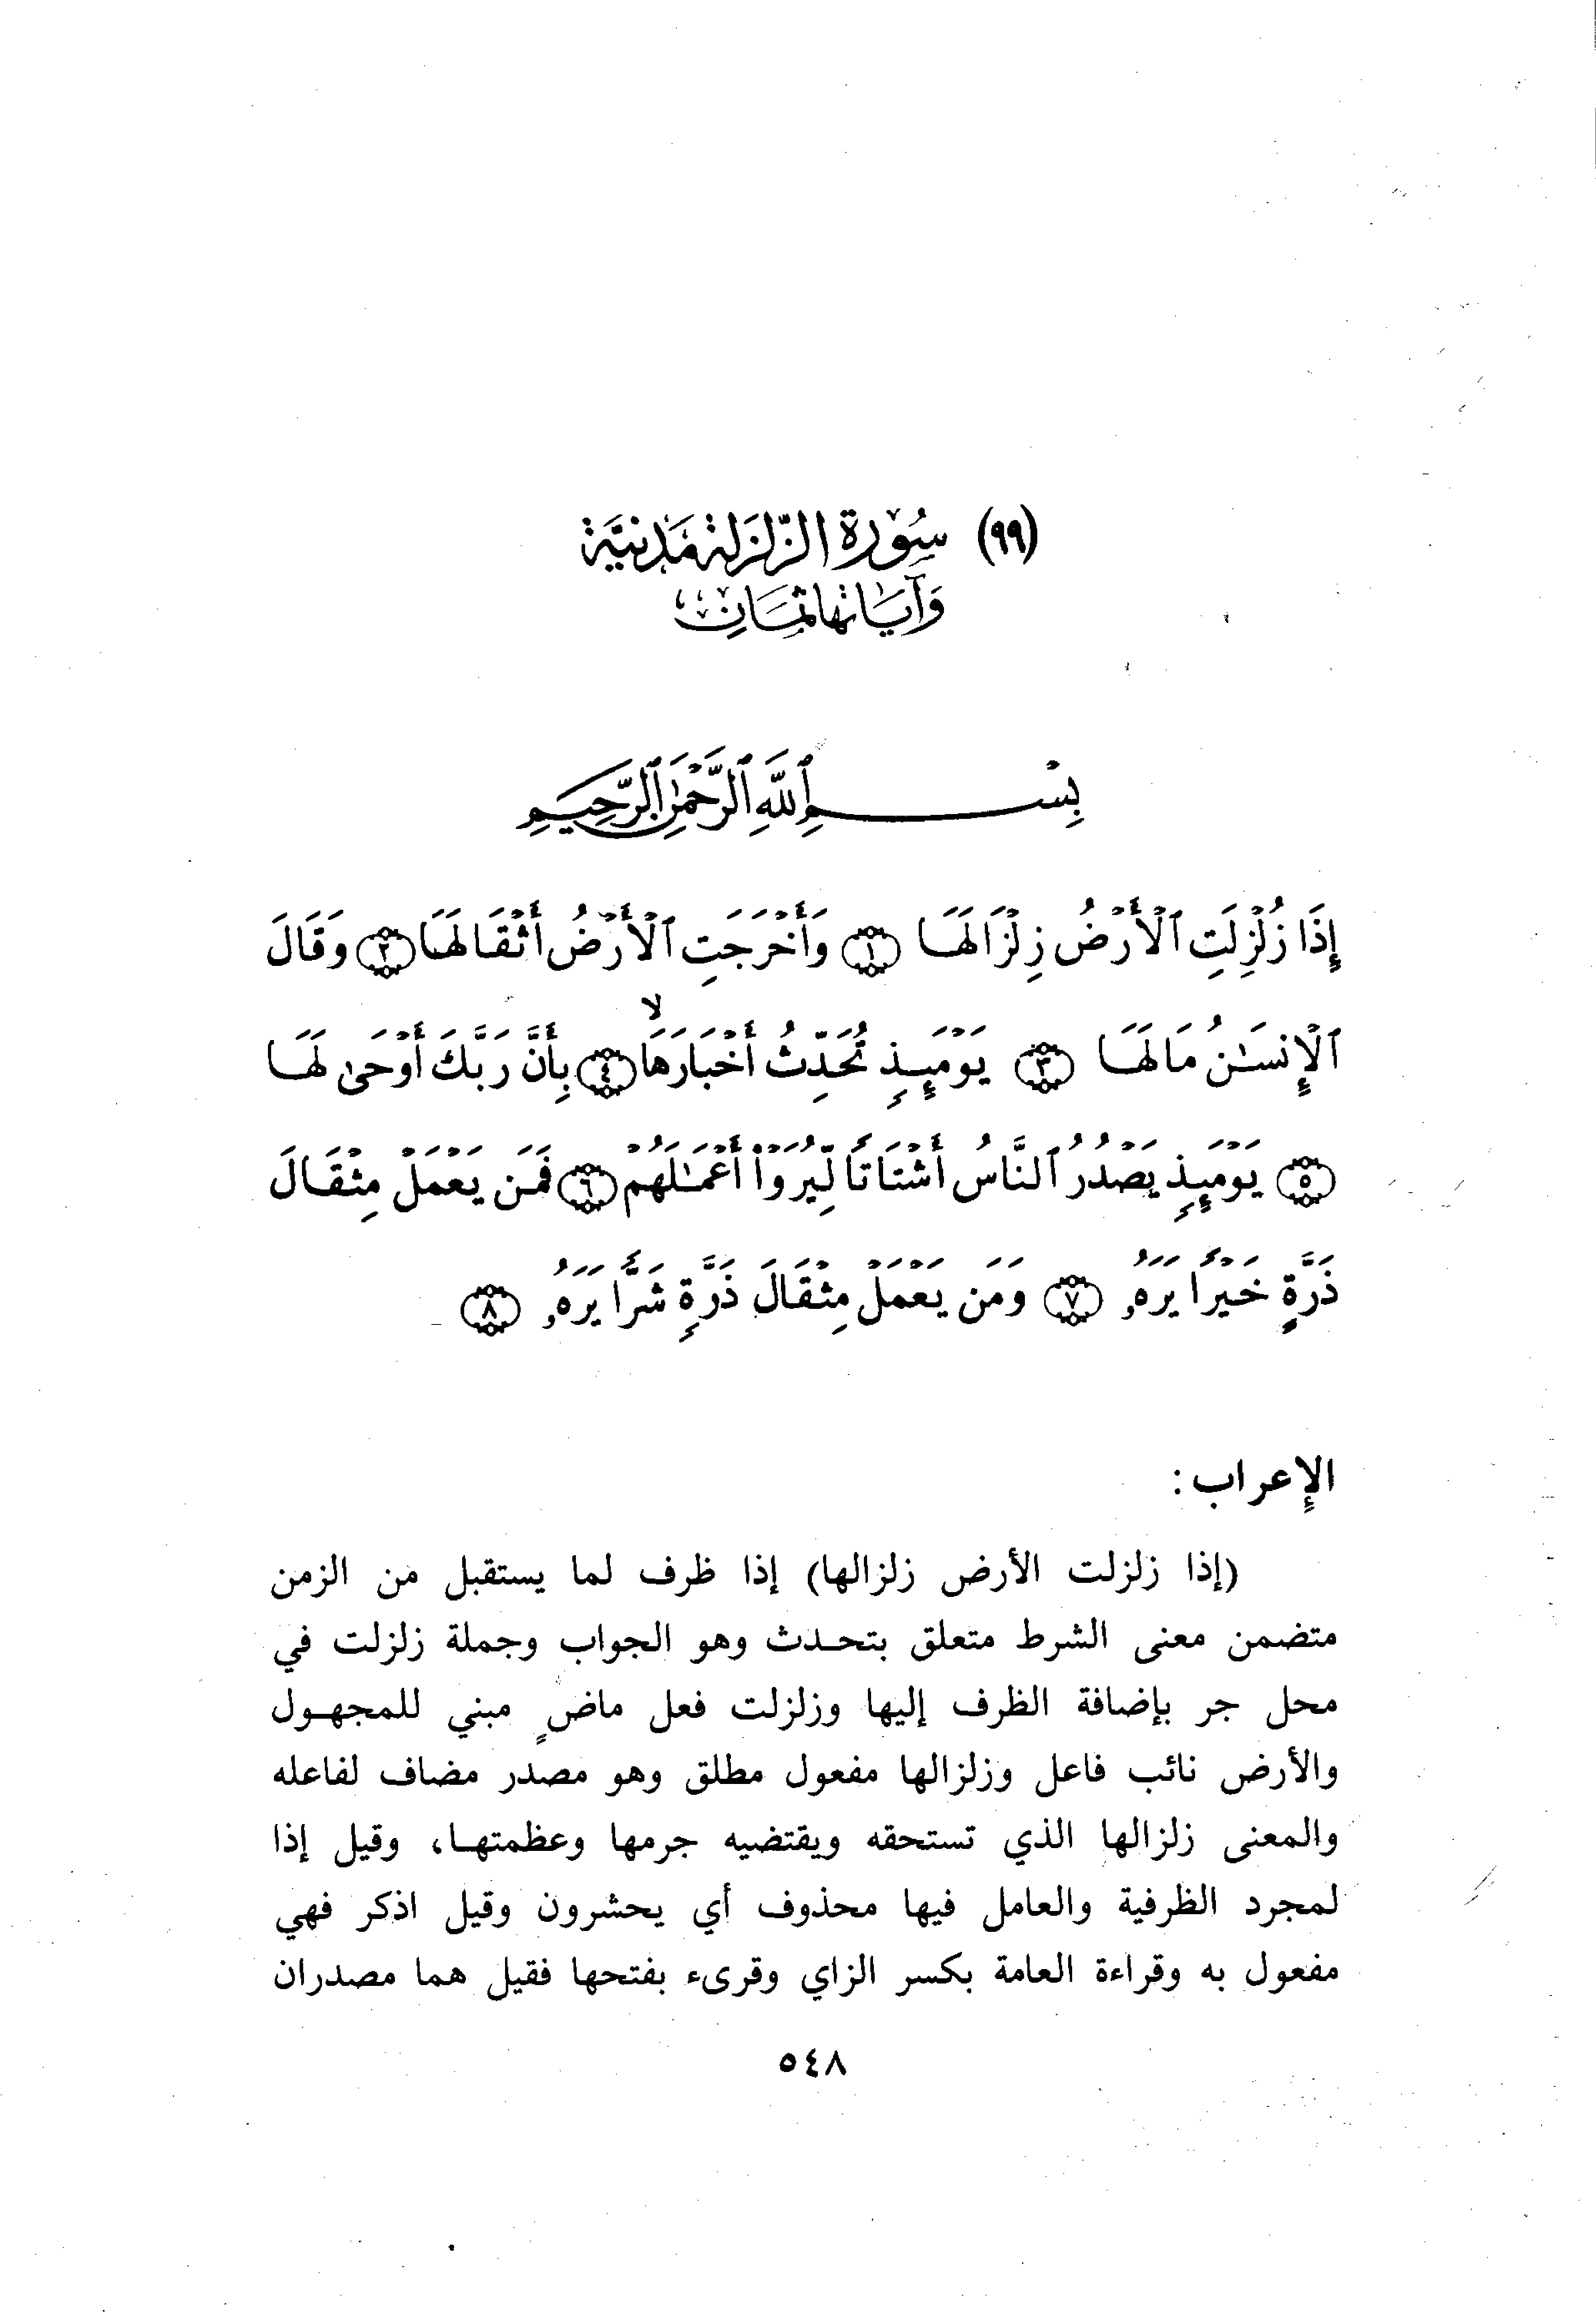 (٩٩) سُورة الزّلزَلة مَدَنيَّة
وَآيَاتها ثَمَانٍ
بِسْمِ ٱللَّهِ ٱلرَّحْمَٰنِ ٱلرَّحِيمِ
إِذَا زُلْزِلَتِ ٱلْأَرْضُ زِلْزَالَهَا ١ وَأَخْرَجَتِ ٱلْأَرْضُ أَثْقَالَهَا ٢ وَقَالَ
ٱلْإِنسَٰنُ مَالَهَا ٣ يَوْمَئِذٍ تُحَدِّثُ أَخْبَارَهَا لا ٤ بِأَنَّ رَبَّكَ أَوْحَىٰ لَهَا
٥ يَوْمَئِذٍ يَصْدُرُ ٱلنَّاسُ أَشْتَاتًا لِّيُرَوْا۟ أَعْمَٰلَهُمْ ٦ فَمَن يَعْمَلْ مِثْقَالَ
ذَرَّةٍ خَيْرًا يَرَهُۥ ٧ وَمَن يَعْمَلْ مِثْقَالَ ذَرَّةٍ شَرًّا يَرَهُۥ ٨
الإعراب :
(إذا زلزلت الأرض زلزالها) إذا ظرف لما يستقبل من الزمن
متضمن معنى الشرط متعلق بتحدث وهو الجواب وجملة زلزلت في
محل جر بإضافة الظرف إليها وزلزلت فعل ماضٍ مبني للمجهول
والأرض نائب فاعل وزلزالها مفعول مطلق وهو مصدر مضاف لفاعله
والمعنى زلزالها الذي تستحقه ويقتضيه جرمها وعظمتها، وقيل إذا
لمجرد الظرفية والعامل فيها محذوف أي يحشرون وقيل اذكر فهي
مفعول به وقراءة العامة بكسر الزاي وقرىء بفتحها فقيل هما مصدران
٥٤٨